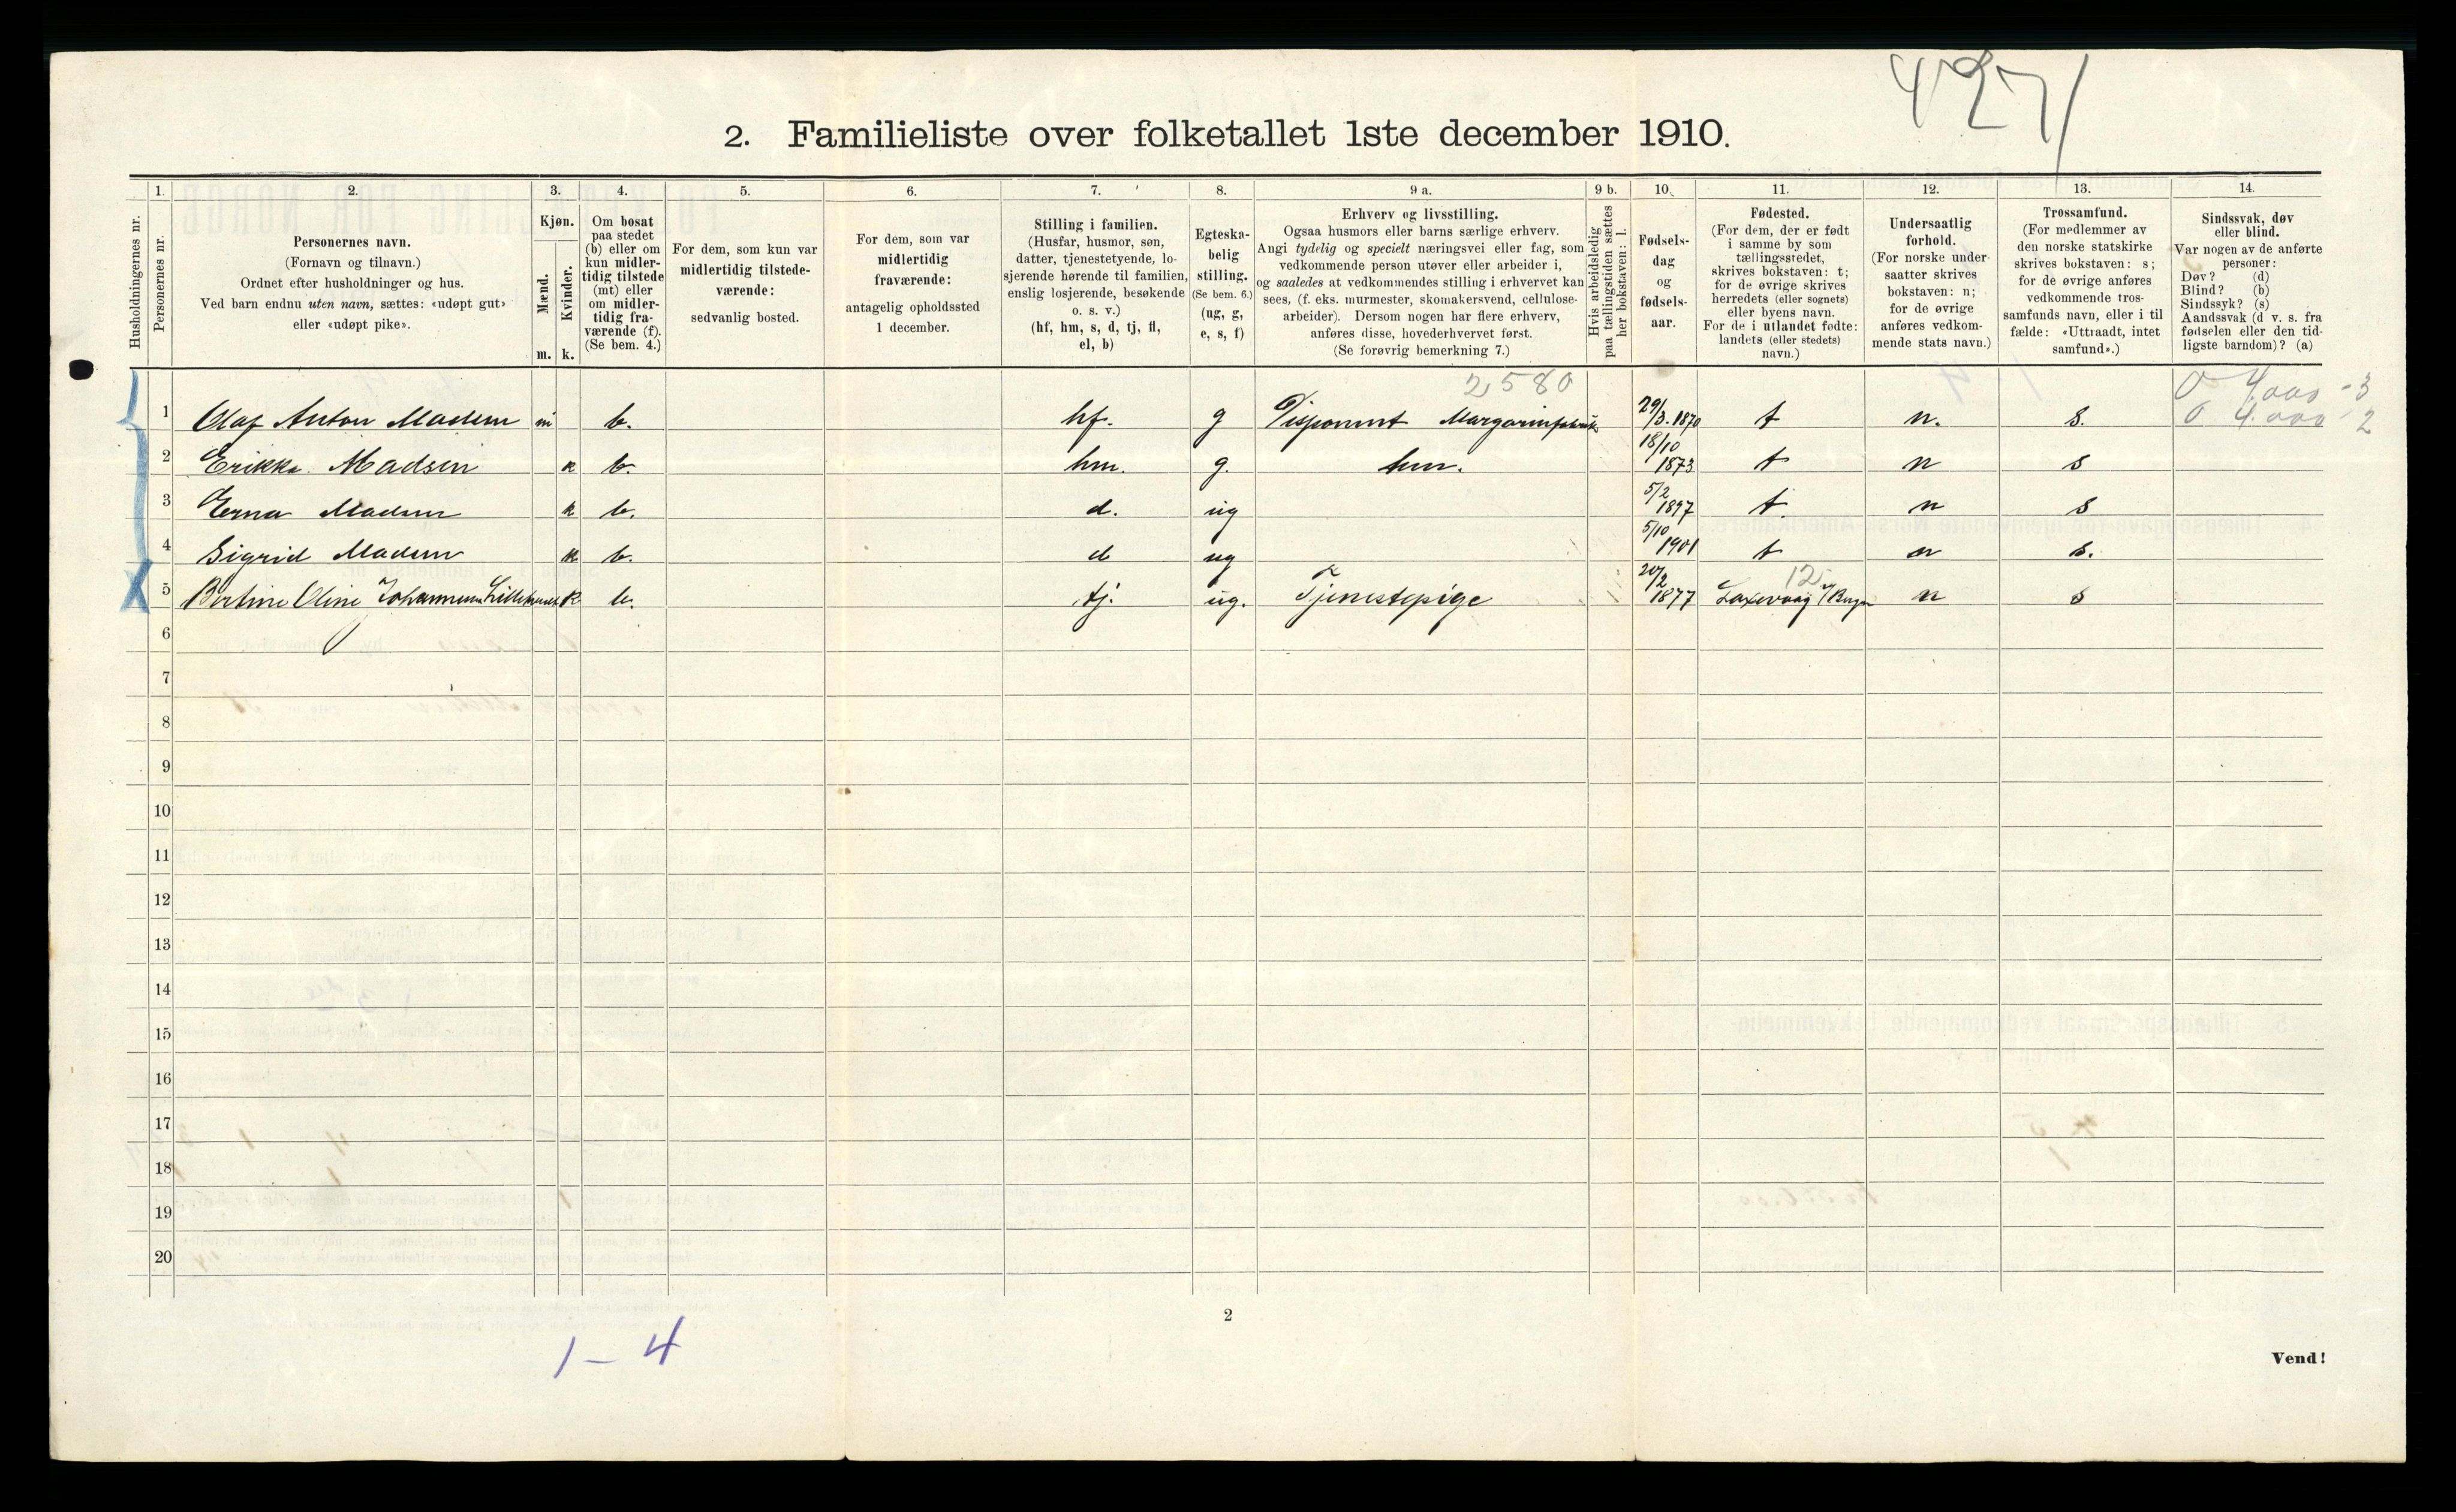 4271
2. Familieliste over folketallet 1ste december 1910.
1. 2. 3. 4. 5. 6. 7. 8. 9 a. 9 b. 10. 11. 12. 13. 14.
Husholdningernes nr.
Personernes nr.
Personernes navn.
(Fornavn og tilnavn.)
Ordnet efter husholdninger og hus.
Ved barn endnu uten navn, sættes: «udøpt gut»
eller «udøpt pike».
Kjøn.
Mænd.
Kvinder.
m. k.
Om bosat
paa stedet
(b) eller om
kun midler-
tidig tilstede
(mt) eller
om midler-
tidig fra-
værende (f).
(Se bem. 4.)
For dem, som kun var
midlertidig tilstede-
værende:
sedvanlig bosted.
For dem, som var
midlertidig
fraværende:
antagelig opholdssted
1 december.
Stilling i familien.
(Husfar, husmor, søn,
datter, tjenestetyende, lo-
sjerende hørende til familien,
enslig losjerende, besøkende
o. s. v.)
(hf, hm, s, d, tj, fl,
el, b)
Egteska-
belig
stilling.
(Se bem. 6.)
(ug, g,
e, s, f)
Erhverv og livsstilling.
Ogsaa husmors eller barns særlige erhverv.
Angi tydelig og specielt næringsvei eller fag, som
vedkommende person utøver eller arbeider i,
og saaledes at vedkommendes stilling i erhvervet kan
sees, (f. eks. murmester, skomakersvend, cellulose-
arbeider). Dersom nogen har flere erhverv,
anføres disse, hovederhvervet først.
(Se forøvrig bemerkning 7.)
Hvis arbeidsledig
paa tællingstiden sættes
her bokstaven: l.
Fødsels-
dag
og
fødsels-
aar.
Fødested.
(For dem, der er født
i samme by som
tællingsstedet,
skrives bokstaven: t;
for de øvrige skrives
herredets (eller sognets)
eller byens navn.
For de i utlandet fødte:
landets (eller stedets)
navn.)
Undersaatlig
forhold.
(For norske under-
saatter skrives
bokstaven: n;
for de øvrige
anføres vedkom-
mende stats navn.)
Trossamfund.
(For medlemmer av
den norske statskirke
skrives bokstaven: s;
for de øvrige anføres
vedkommende tros-
samfunds navn, eller i til
fælde: «Uttraadt, intet
samfund».)
Sindssvak, døv
eller blind.
Var nogen av de anførte
personer:
Døv? (d)
Blind? (b)
Sindssyk? (s)
Aandssvak (d v. s. fra
fødselen eller den tid-
ligste barndom)? (a)
2580
O 4.000 - 3
O 4.000 - 2
1 Olaf Anton Madsen m b. hf. g Disponent Margarinfabrik 29/3. 1870 t n. s.
2 Erikka Madsen k b. hm. g. hm. 18/10 1873 t n s
3 Erna Madsen k b. d. ug 5/2 1897 t n s
4 Sigrid Madsen k b. d ug 5/10 1901 t n s.
12
5 Bertine Oline Johannessen k b. tj. ug. Tjenestepige 20/2 1877 Laxevaag v/ Bergen n s
6
7
8
9
10
11
12
13
14
15
16
17
18
19
20
2
1 - 4
Vend!